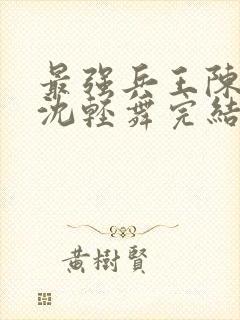 最强兵王陳
沈輕舞完結
黃樹賢